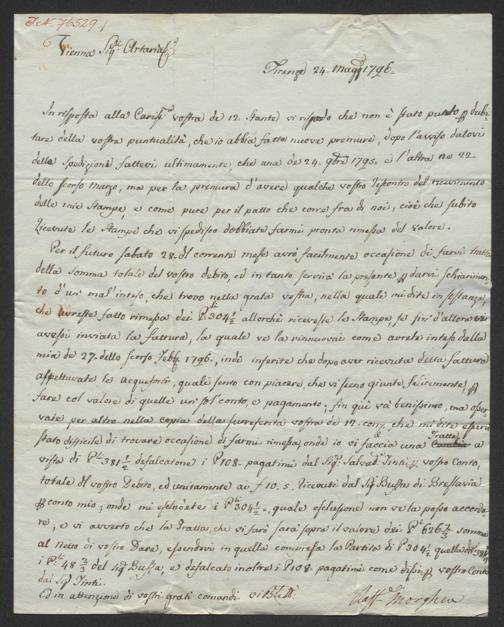 I.N. 76529
Vienna Sig.ri Artaria C.
Firenze 24. Magg. 1796.
In risposta alla Cariss.ma vostra de 12. Stante vi rispondo che non è stato punto p dubi
tare della vostra puntualità, che io abbia fatto nuove premure, dopo l'avviso datovi
della Spedizione fattevi ultimamente, che una de 24. 9bre 1795. e l'altra ne 22
dello scorso marzo, ma per la premura d'avere qualche vostro riscontro del ricevimento
delle mie Stampe, e come pure per il patto che corre fra di noi, cioè che subito
ricevute le Stampe che vi spedisco dobbiate farmi pronta rimessa del valore.
Per il futuro sabato 28. del corrente mese avrò facilmente occasione di farvi tratta
della somma totale del vostro debito, ed in tanto servirà la presente p darvi schiarimen
to d'un mal'inteso, che trovo nella grata vostra, nella quale mi dite in sostanza,
che avreste fatto rimessa dei 304 1/2 allorchè riceveste le Stampe, se fin d'allora vi
avessi inviata la fattura, la quale ve la rinnuovai come avrete inteso dalla
mia de 27. dello scorso Feb. 1796., indi inferite che dopo aver ricevuta detta fattura
aspettavate le acqueforti, quale sento con piacere, che vi sieno giunte felicemente, p
fare col valore di quelle un sol conto, e pagamento; fin quì và benissimo, ma osser
vate per altro nella copia della surreferita vostra de 12. che mi dite essere
stato difficile di trovare occasione di farmi rimessa, onde io vi faccia una Tratta a
vista di 381 1/2 defalcatone i 108. pagatimi dal Sig. Salvad. Tinti p vostro Conto,
totale del vostro Debito, ed unitamente ai f 10. 5. ricevuti dal Sig. Bussa di Breslavia
p conto mio; onde mi escludete i 304 1/2, quale esclusione non ve la posso accorda
re, e vi avverto che la Tratta che vi farò sarà sopra il valore dei 626 2/3 somma
al netto di vostro Dare, essendovi in quella compresa la Partita di 304 1/2 quella di 381 1/2
i 48 2/3 del Sig. Bussa, e defalcato inoltre i 108. pagatimi come dissi p vostro Conto
dal Sig. Tinti.
Ed in attenzione di vostri grati comandi vi
Raff. Morghen